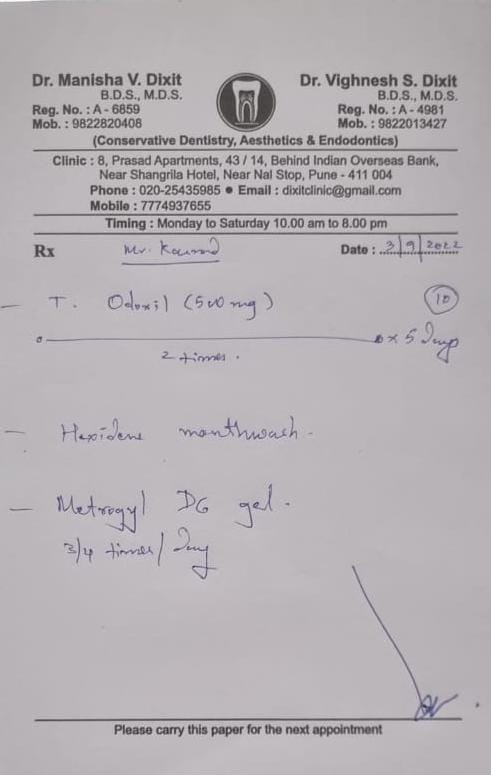 Dr. Manisha V. Dixit
B.D.S., M.D.S.
Reg. No. : A - 6859
Mob. : 9822820408
Dr. Vighnesh S. Dixit
B.D.S., M.D.S.
Reg. No. : A - 4981
Mob. : 9822013427
(Conservative Dentistry, Aesthetics & Endodontics)
Clinic : 8, Prasad Apartments, 43 / 14, Behind Indian Overseas Bank,
Near Shangrila Hotel, Near Nal Stop, Pune - 411 004
Phone : 020-25435985 ● Email : dixitclinic@gmail.com
Mobile : 7774937655
Timing : Monday to Saturday 10.00 am to 8.00 pm
Rx Mr. Date : 3/9/2022
- T. Odoxil (500mg) 10
o x 5 days
2 times.
- Hexidene mouthwash.
- Metrogyl DG gel.
3/4 times/day
Please carry this paper for the next appointment